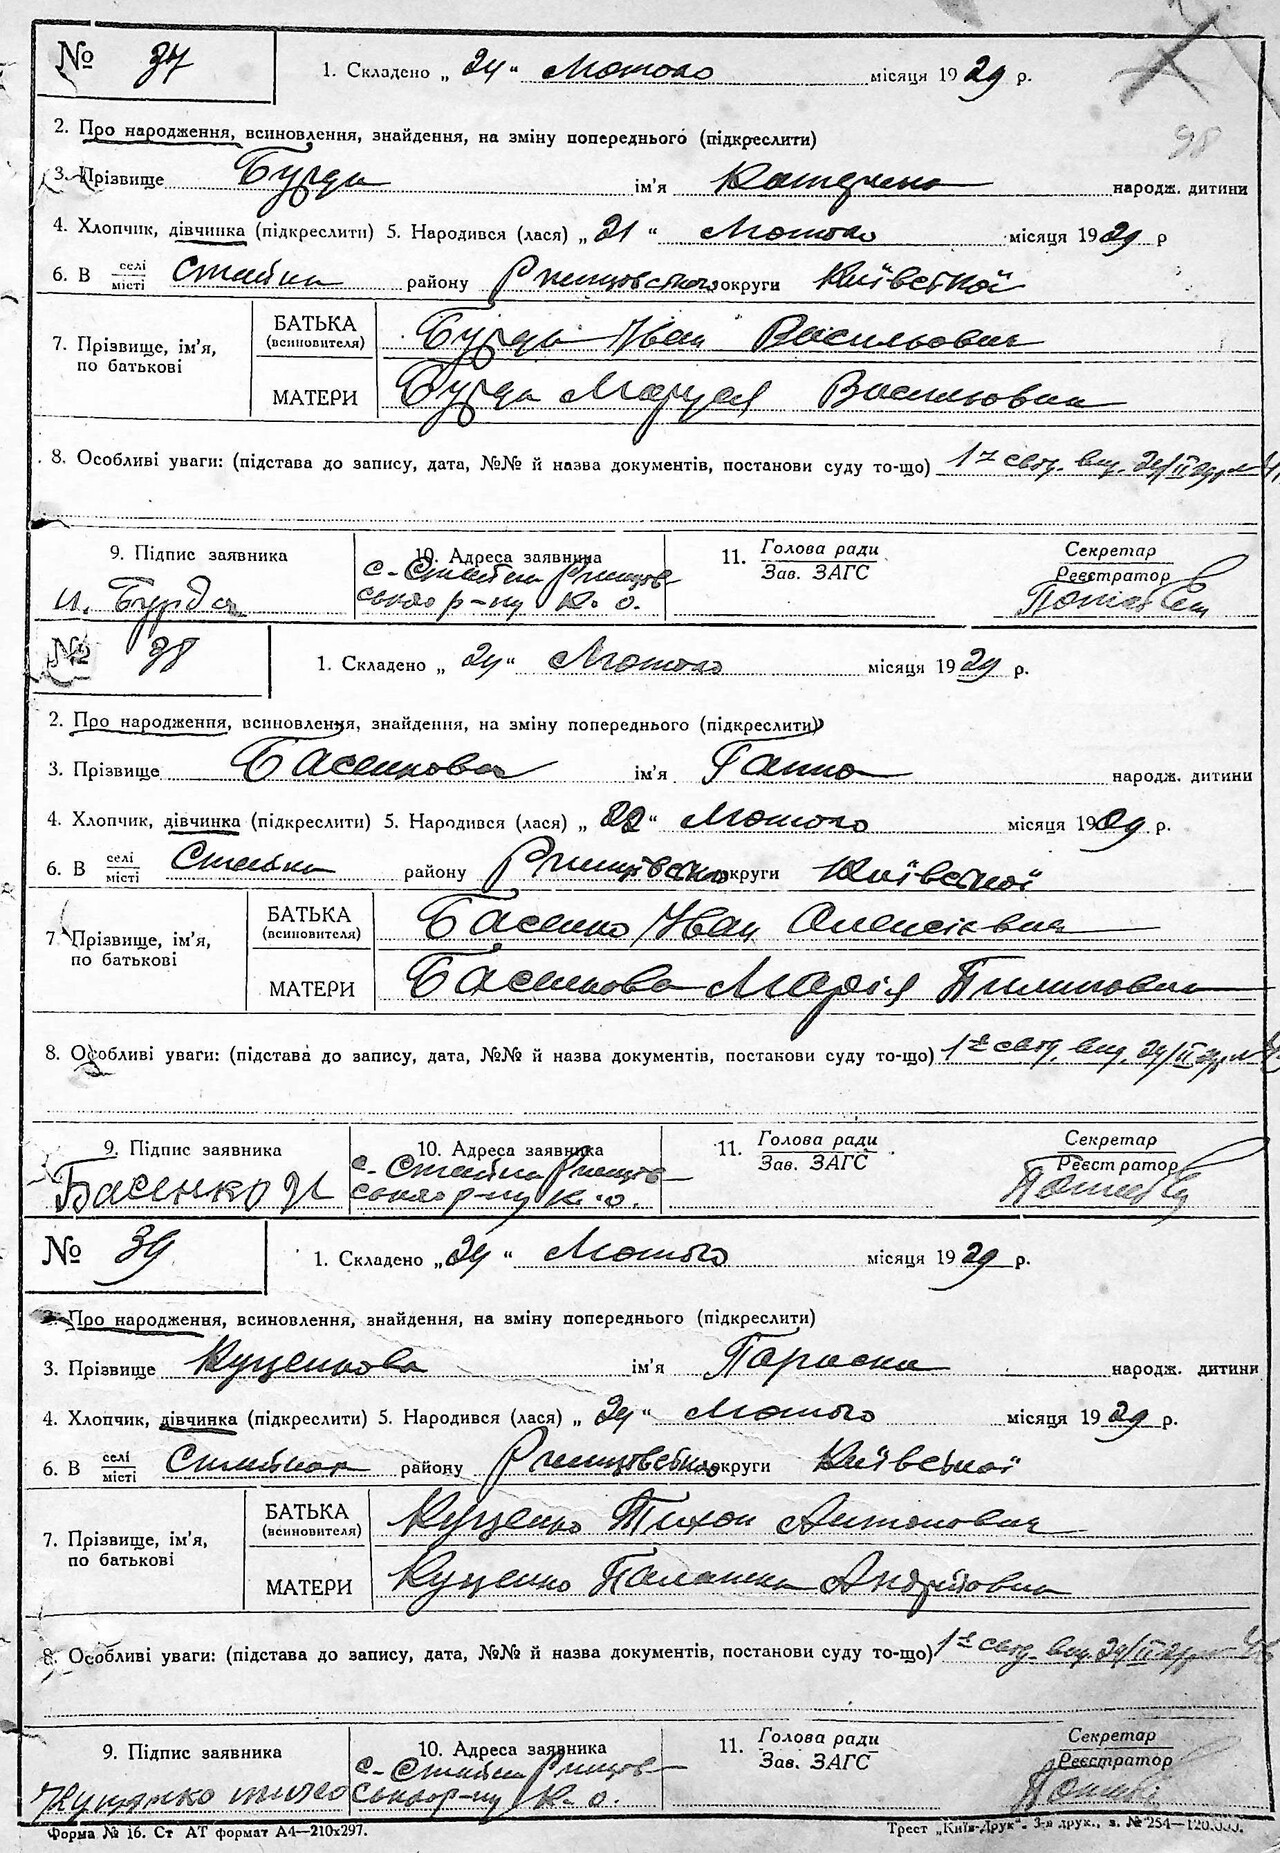 № 37
1. Складено „ 24 " Лютого місяця 1929 р.
98
2. Про народження, всиновлення, знайдення, на зміну попереднього (підкреслити)
3. Прізвище Бурда ім'я Катерина народж. дитини
4. Хлопчик, дівчинка (підкреслити) 5. Народився (лася) „ 21 " Лютого місяця 1929 р
6. В селі/місті Стайки району Ржищівського округи Київської
7. Прізвище, ім'я, по батькові
БАТЬКА (всиновителя) Бурда Иван Васильович
МАТЕРИ Бурда Маруся Василювна
8. Особливі уваги: (підстава до запису, дата, №№ й назва документів, постанови суду то-що) 1е свід. вид. 24/II 29р №
9. Підпис заявника
и. Бурда
10. Адреса заявника
с. Стайки Ржищів
ського р-ну К. о.
11. Голова ради
Зав. ЗАГС
Секретар
Реєстратор
№ 38
1. Складено „ 24 " Лютого місяця 1929 р.
2. Про народження, всиновлення, знайдення, на зміну попереднього (підкреслити)
3. Прізвище Басенкова ім'я Ганна народж. дитини
4. Хлопчик, дівчинка (підкреслити) 5. Народився (лася) „ 22 " Лютого місяця 1929 р.
6. В селі/місті Стайки району Ржищівського округи Київської
7. Прізвище, ім'я, по батькові
БАТЬКА (всиновителя) Басенко Иван Олексієвич
МАТЕРИ Басенкова Марія Пилиповна
8. Особливі уваги: (підстава до запису, дата, №№ й назва документів, постанови суду то-що) 1е свід. вид. 24/II 29р №
9. Підпис заявника
Басенко И
10. Адреса заявника
с. Стайки Ржищів
ського р-ну К. о.
11. Голова ради
Зав. ЗАГС
Секретар
Реєстратор
№ 39
1. Складено „ 24 " Лютого місяця 1929 р.
2. Про народження, всиновлення, знайдення, на зміну попереднього (підкреслити)
3. Прізвище Куценкова ім'я Параска народж. дитини
4. Хлопчик, дівчинка (підкреслити) 5. Народився (лася) „ 24 " Лютого місяця 1929 р.
6. В селі/місті Стайках району Ржищівського округи Київської
7. Прізвище, ім'я, по батькові
БАТЬКА (всиновителя) Куценко Тихон Антонович
МАТЕРИ Куценко Палашка Андріївна
8. Особливі уваги: (підстава до запису, дата, №№ й назва документів, постанови суду то-що) 1е свід. вид. 24/II 29р №
9. Підпис заявника
10. Адреса заявника
с. Стайки Ржищів
ського р-ну К. о.
11. Голова ради
Зав. ЗАГС
Секретар
Реєстратор
Форма № 16. Ст АТ формат А4—210х297.
Трест „Київ-Друк". 3-я друк., з. № 254—120.000.